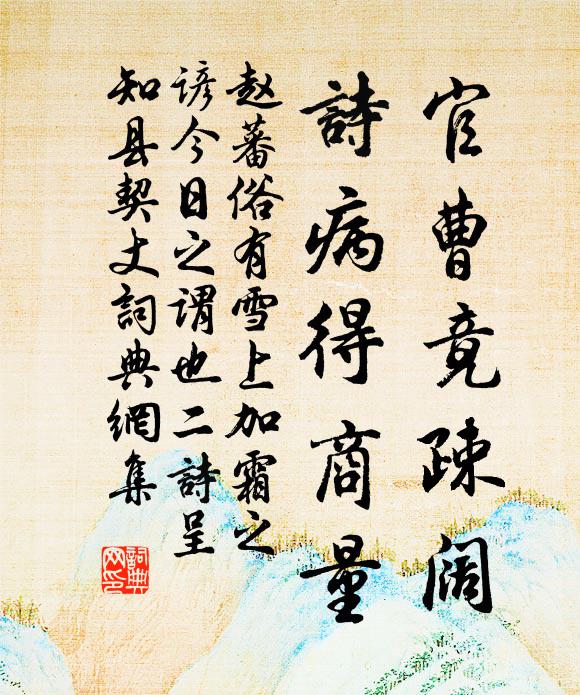 官曹竟疎阔
詩病得商量
赵蕃俗有雪上加霜之
谚今日之谓也二詩呈
知县契丈詞典網集
詞典
网印